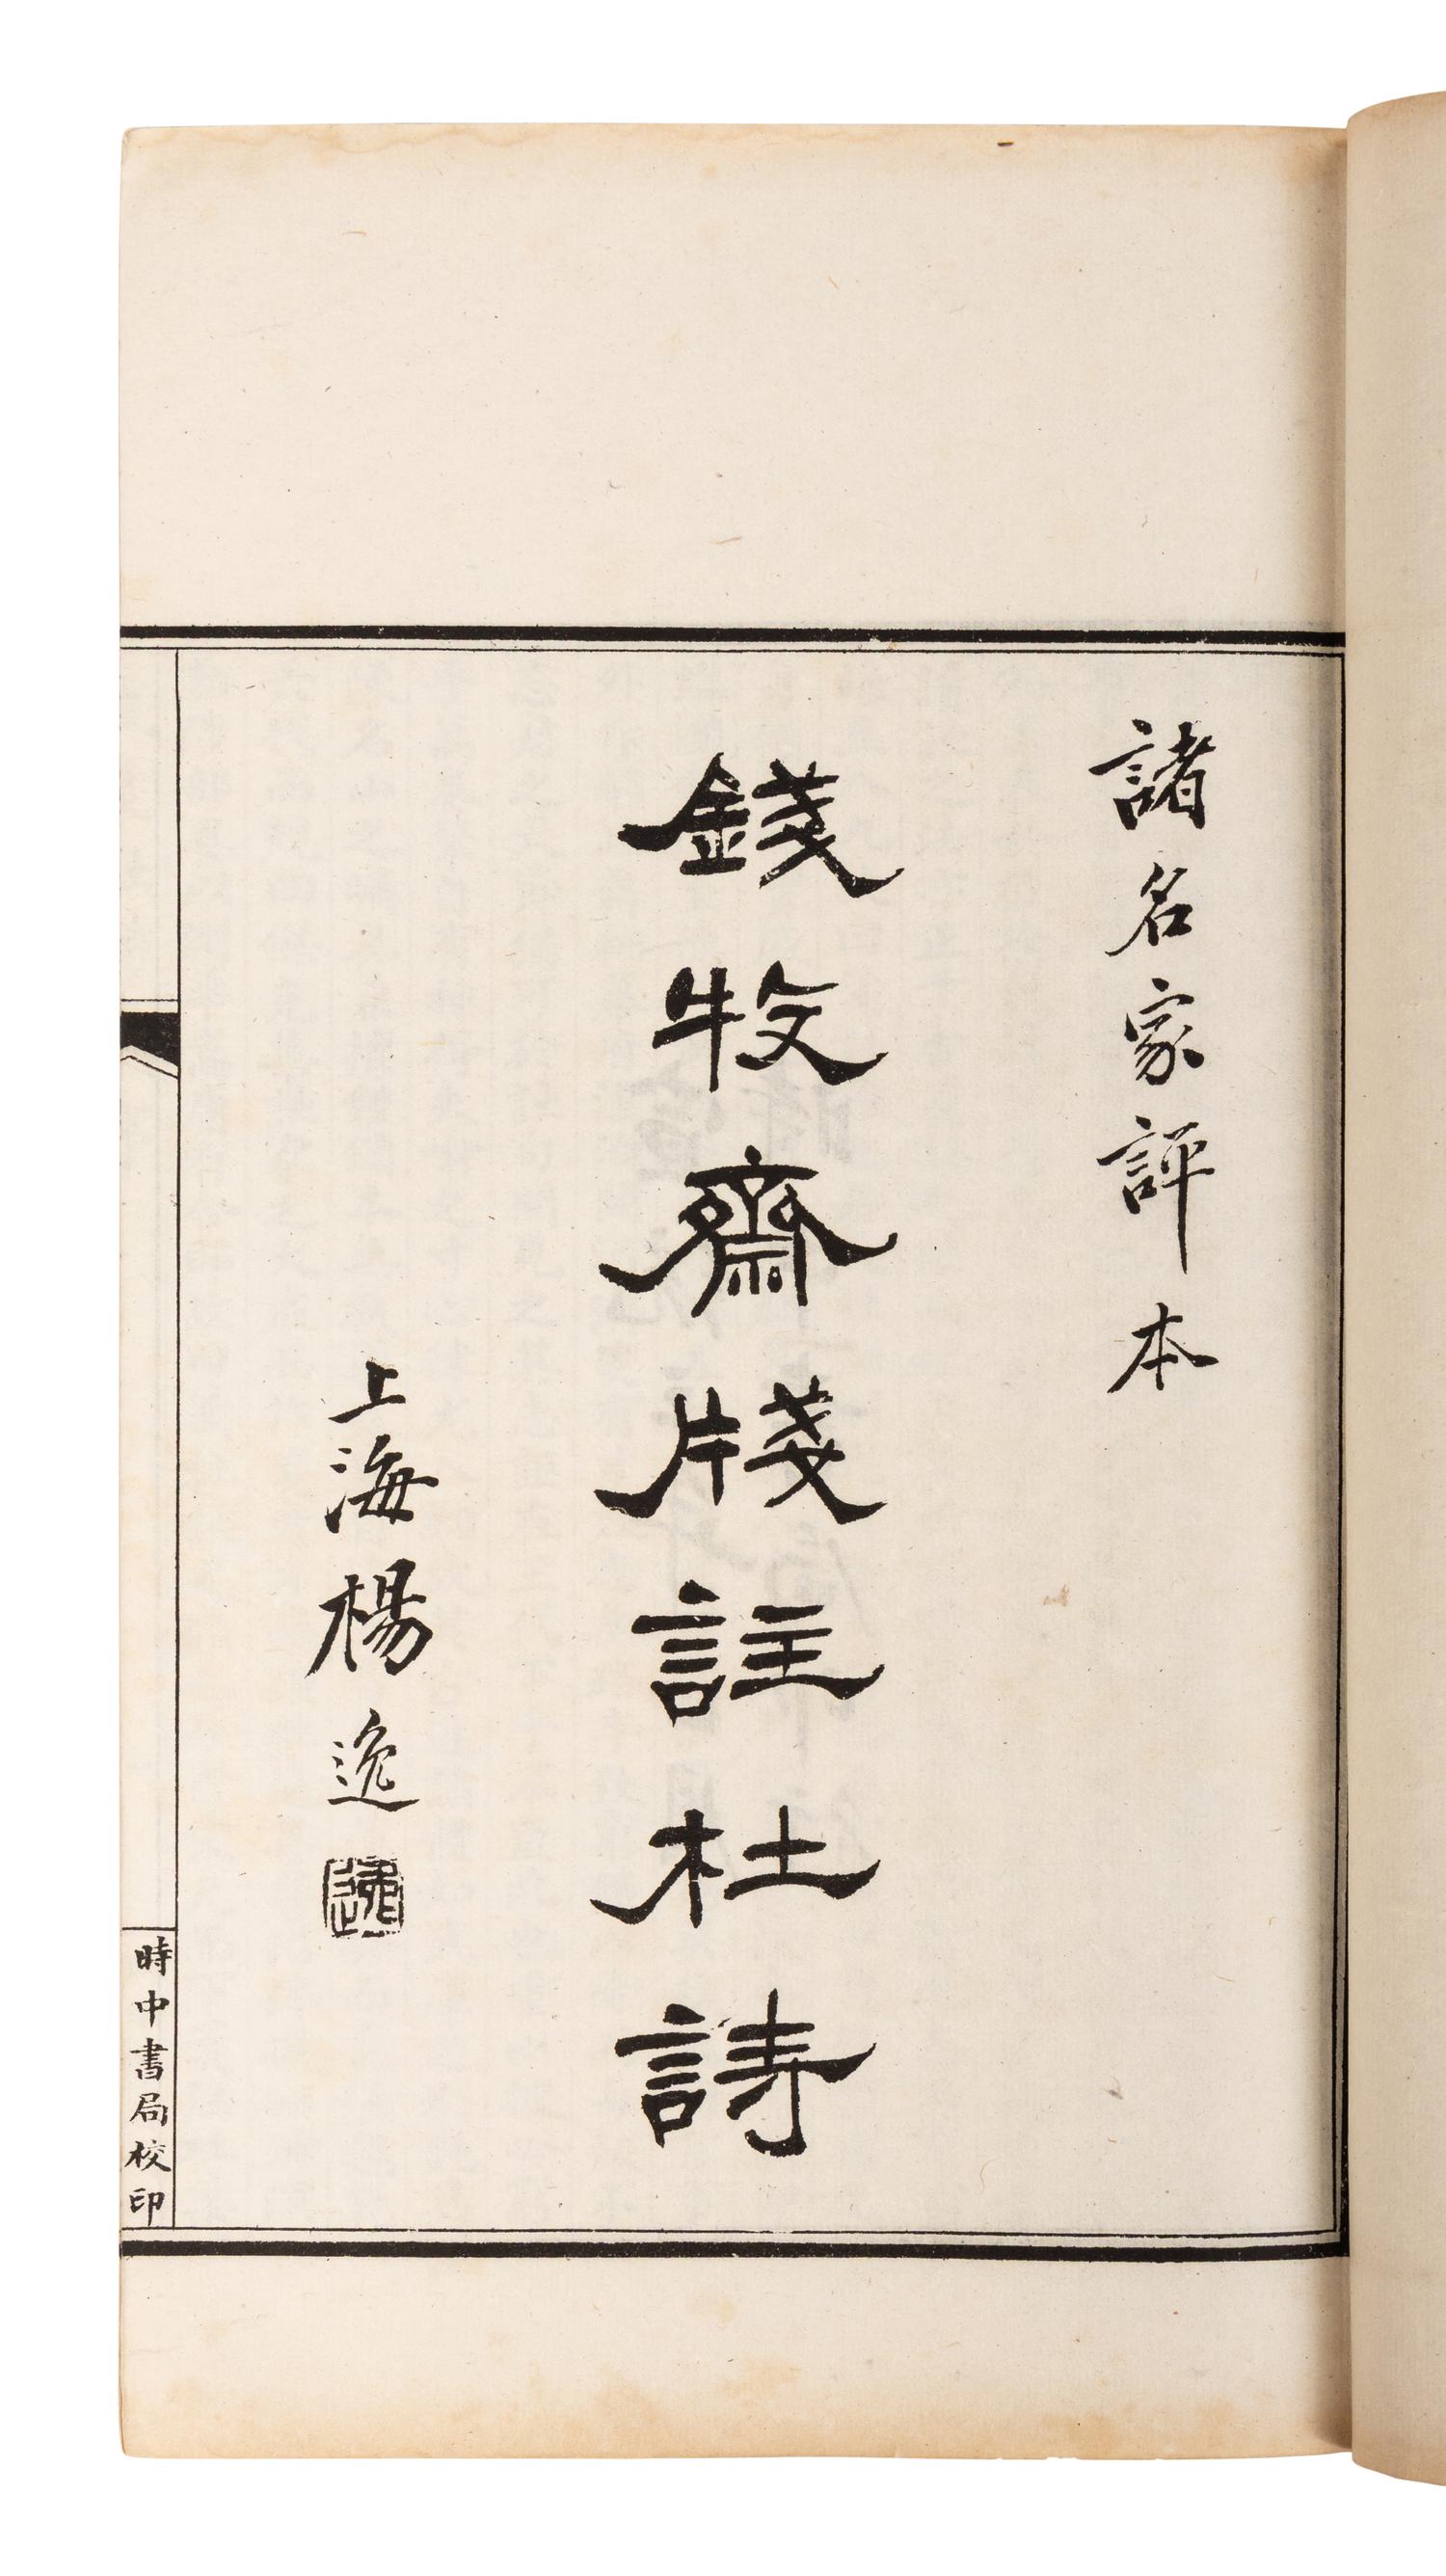 諸名家評本
錢牧齋牋註杜詩
上海楊逸
時中書局校印